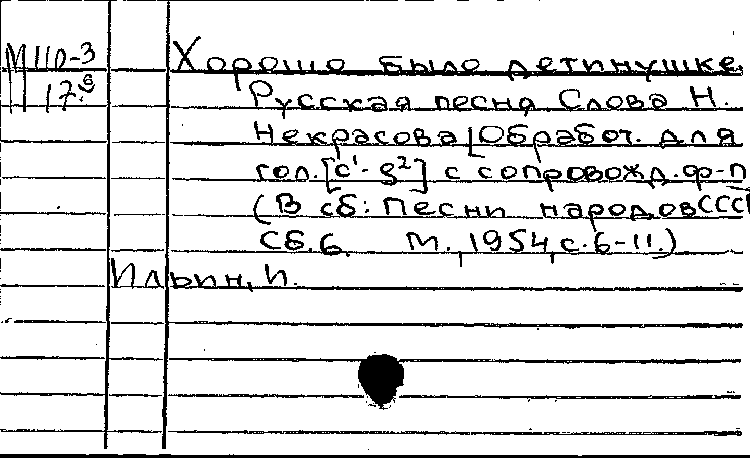 М110-3 Хорошо было детинушке.
17.9 Русская песня Слова Н.
Некрасова [Обработ. для
гол. [c¹-g²] с сопровожд. ф-п
(В сб: Песни народов СССР
Сб. 6. М., 1954, с. 6-11.)
Ильин, И.